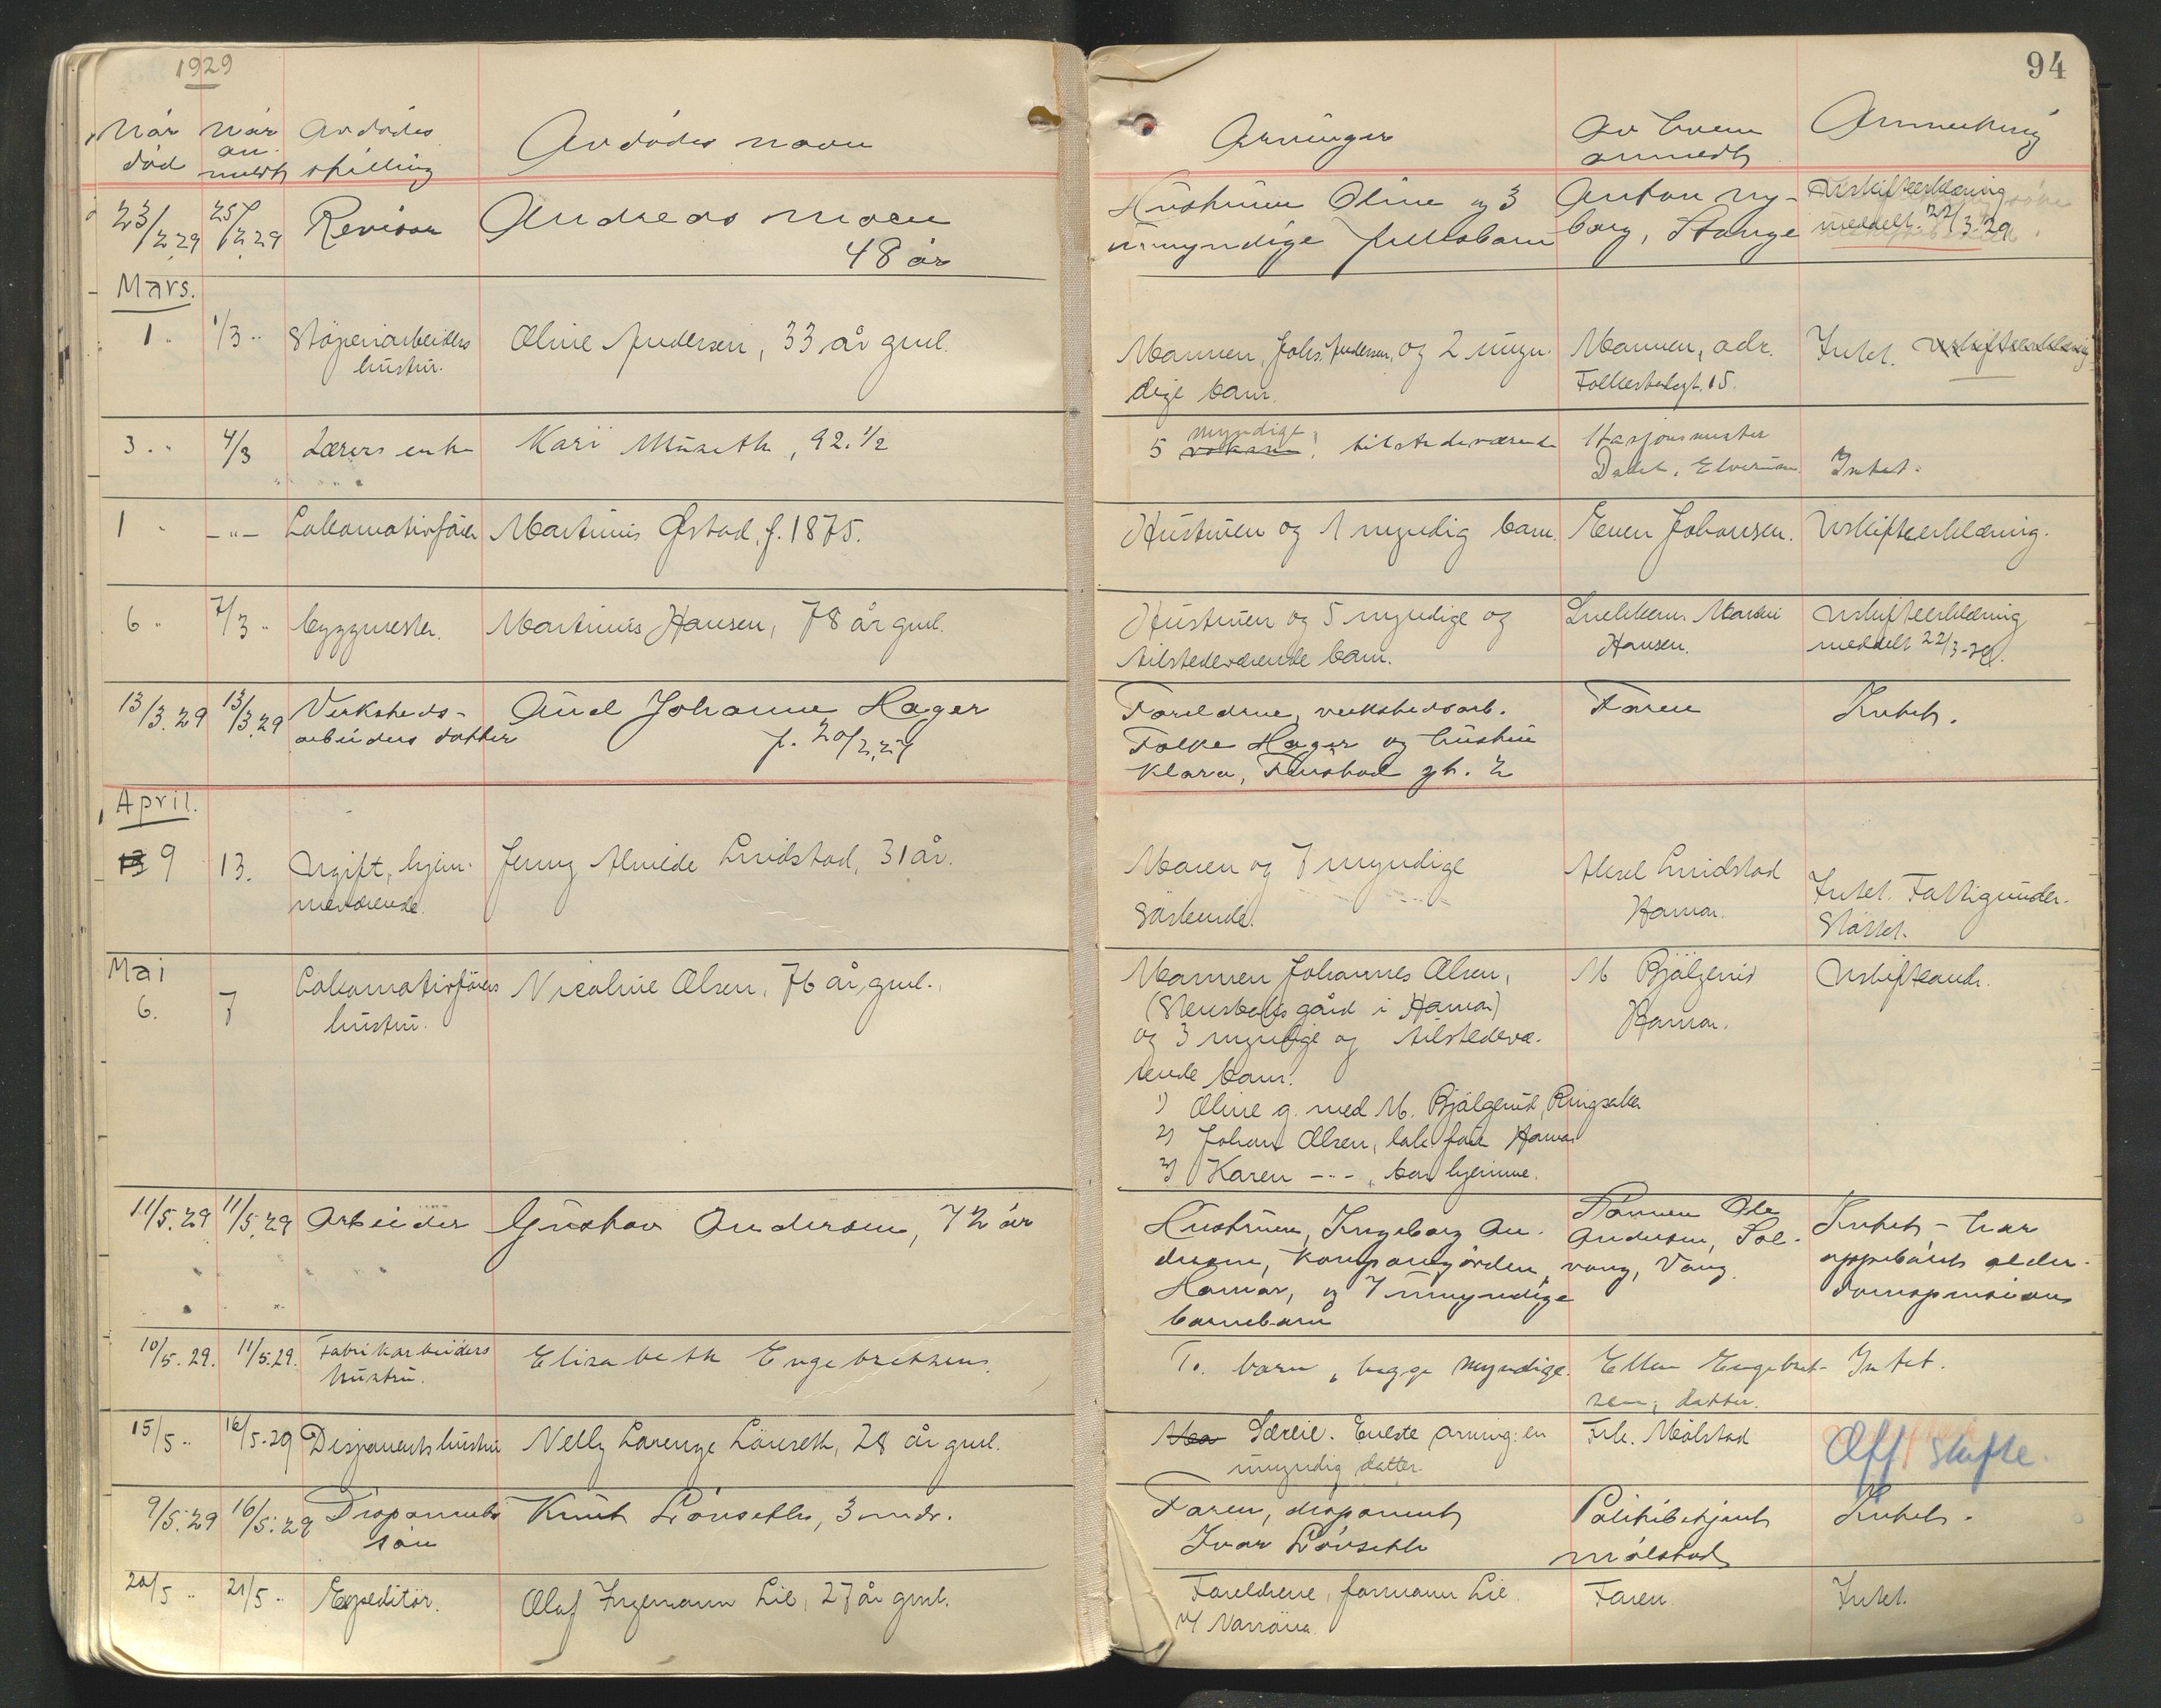 1929
94
Når død
Når anmeldt
Avdødes stilling
Avdødes navn
Arvinger
Av hvem anmeldt
Anmerkning
23/2.29 25/2.29 Revisor Andreas Moen
48 år
Hustruen Oline og 3
umyndige fellesbarn
Anton Ny-
borg, Stange
Uskifteerklæring
meddelt 22/3-29
Mars.
1 " 1/3 " Støperiarbeiders
hustru.
Oline Andersen, 33 år gml.
Mannen, Johs. Andersen, og 2 umyn-
dige barn.
Mannen, adr.
Folkestadgt. 15.
Intet. Uskifteerklæring
3 " 4/3 Lærers enke Kari Museth, 92.1/2
5 voksne myndige, tilstedeværende
Stasjonsmester
Elverum.
Intet.
1 " -"- Lokomotivfører Martinus Østad, f. 1875.
Hustruen og 1 myndig barn. Even Johansen. Uskifteerklæring.
6 " 7/3 " byggmester. Martinus Hansen, 78 år gml.
Hustruen og 5 myndige og
tilstedeværende barn.
Snekkerm. Martin
Hansen.
Uskifteerklæring
meddelt 22/3-29.
13/3.29 13/3.29 Verksteds-
arbeiders datter
Aud Johanne Hager
f. 20/2.27
Foreldrene, verkstedsarb.
Folke Hager og hustru
Klara, Furstad gt. 2
Faren
Intet.
April.
13 9 13. Ugift, hjem-
meværende.
Jenny Alvilde Lundstad, 31 år.
Moren og 7 myndige
søskende.
Aksel Lundstad
Hamar.
Intet. Fattigunder-
støttet.
Mai
6. 7 Lokomotivførers
hustru.
Nicoline Olsen, 76 år gml.
Mannen Johannes Olsen,
(Stensbakgård i Hamar)
og 3 myndige og tilstedevæ-
rende barn:
1) Oline g. med M. Bjølgerud, Ringsaker
2) Johan Olsen, lok.før. Hamar
3) Karen -"-, bor hjemme.
M Bjølgerud
Hamar.
Uskifteandr.
11/5.29 11/5.29 Arbeider Gustav Andersen, 72 år
Hustruen, Ingeborg An-
dersen, Kompanigården,
Hamar, og 7 umyndige
barnebarn
Sønnen Ole
Andersen, Sol-
vang, Vang.
Intet - har
oppebåret alder-
domspensjon
10/5.29. 11/5.29. Fabrikarbeiders
hustru.
Elisabeth Engebretsen.
To barn, begge myndige.
Ellen Engebret-
sen, datter.
Intet.
15/5 " 16/5-29 Disponents hustru Nelly Lorenze Lönseth, 28 år gml.
Særeie. Eneste arving: en
umyndig datter.
Frk. Mölstad
Off. skifte.
9/5.29 16/5.29 Disponents
sön
Knut Lönseth, 3 mdr.
Faren, disponent
Ivar Lönseth
Politibetjent
Mølstad
Intet.
20/5 " 21/5 " Expeditör. Olaf Ingemann Lie, 27 år gml.
Foreldrene, formann Lie
Faren.
Intet.